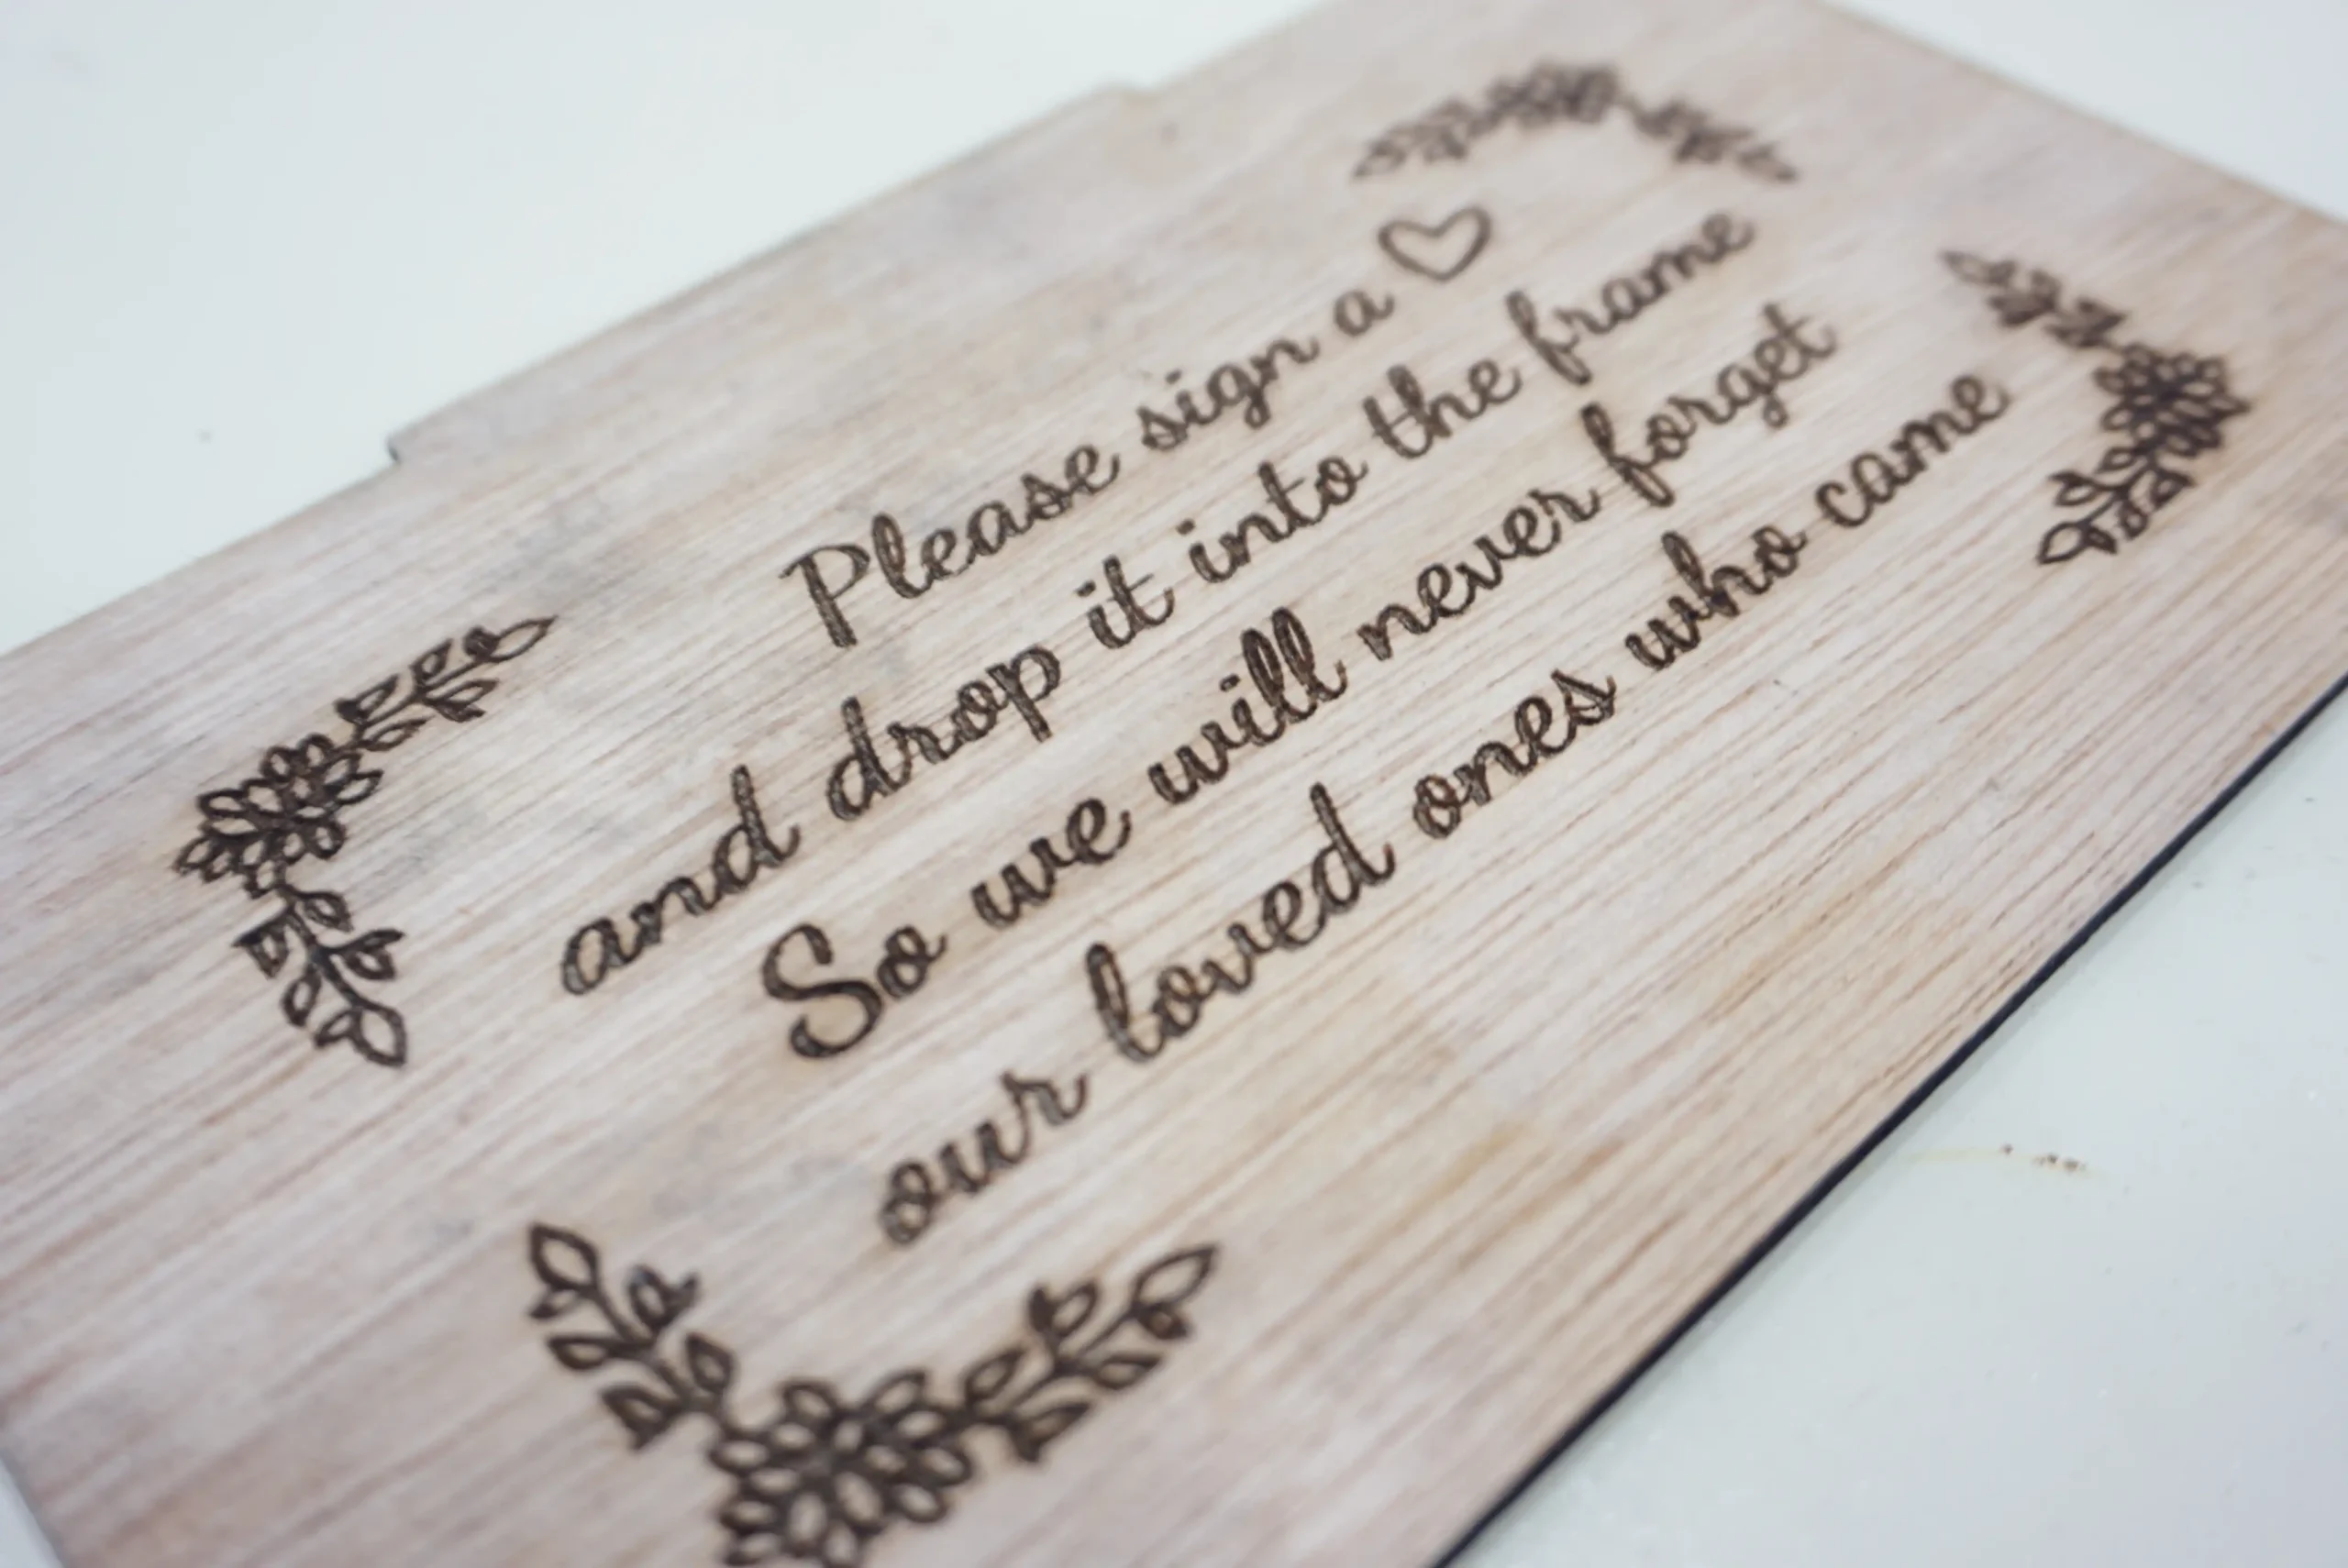 Please sign a ♡
and drop it into the frame
So we will never forget
our loved ones who came